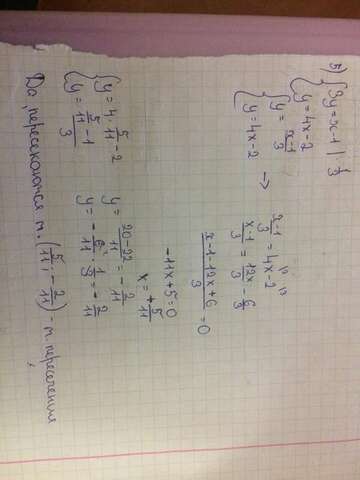 5) { 3y = x-1 | · 1/3
{ y = 4x-2
{ y = (x-1)/3
{ y = 4x-2 →
(x-1)/3 = 4x-2
(x-1)/3 = 12x/3 - 6/3
(x-1-12x+6)/3 = 0
-11x+5=0
x = +5/11
{ y = 4 · 5/11 - 2
{ y = (5/11 - 1)/3
y = (20-22)/11 = -2/11
y = -6/11 · 1/3 = -2/11
Да, пересекаются т. (5/11; -2/11) - т. пересечения